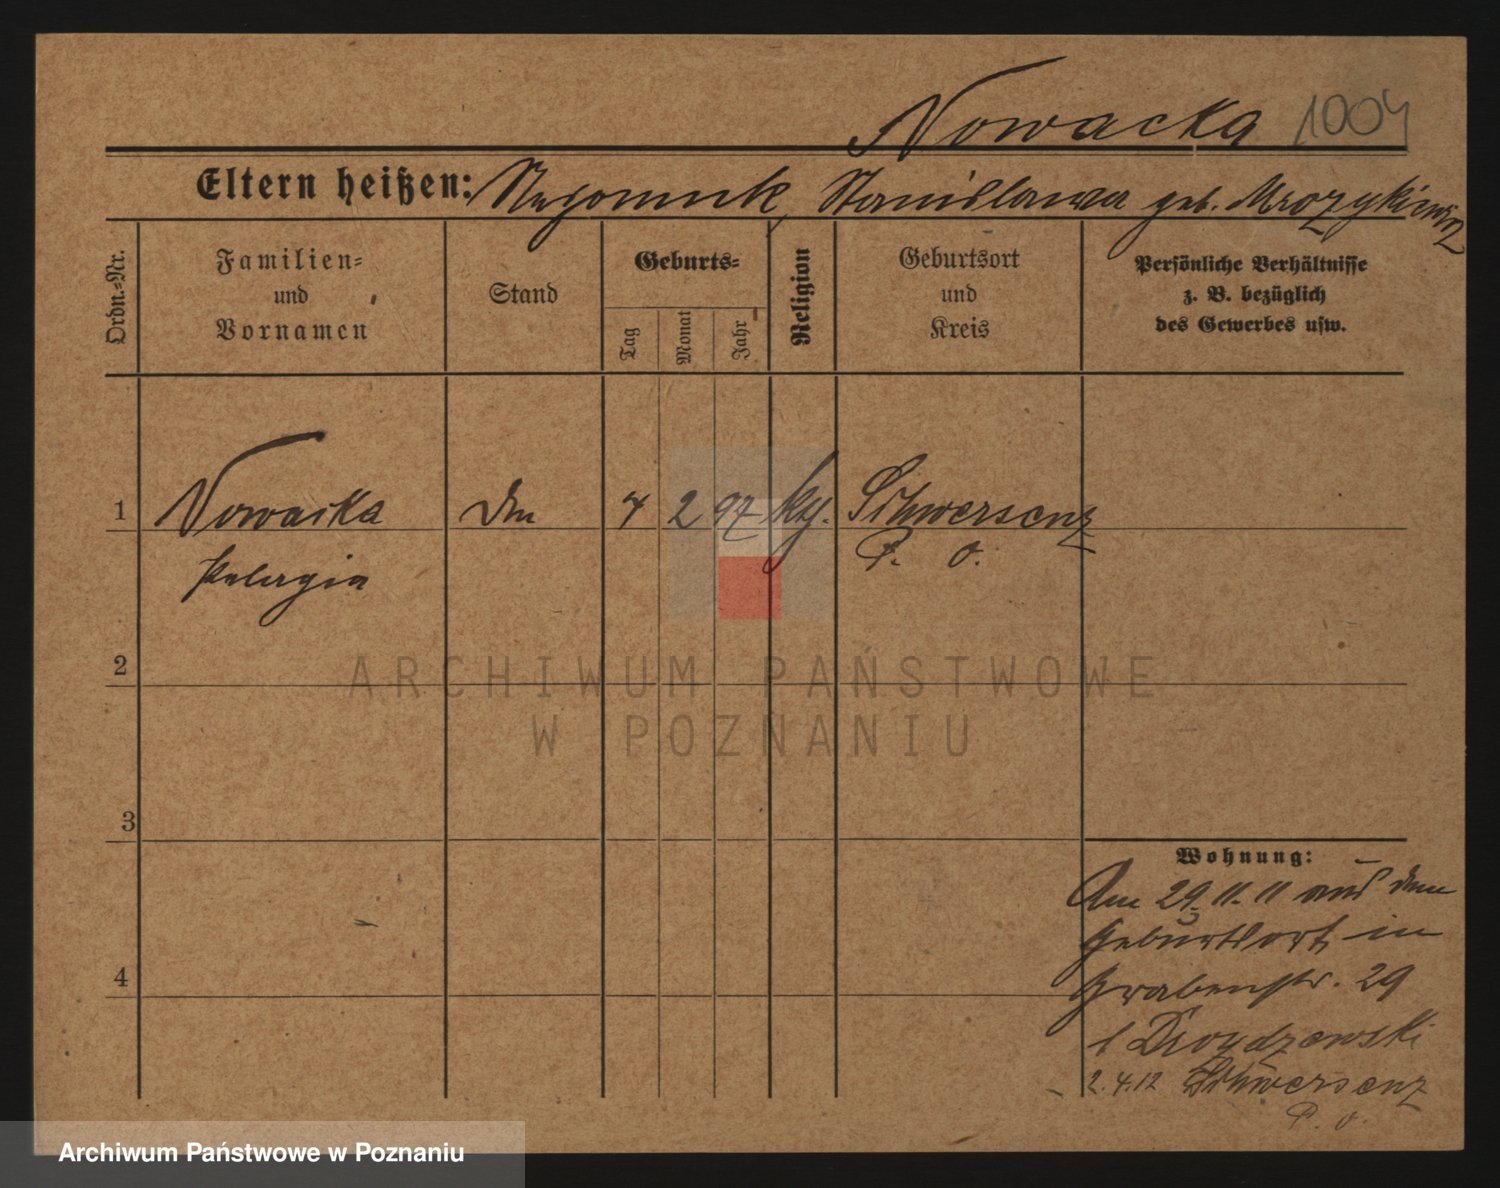 Nowacka 1004
Eltern heißen: Nepomuk, Stanislawa geb. Mrozykiewicz
Ordn.=Nr.
Familien=
und
Vornamen
Stand
Geburts=
Tag
Monat
Jahr
Religion
Geburtsort
und
Kreis
Persönliche Verhältnisse
z. B. bezüglich
des Gewerbes usw.
1 Nowacka 4 2 97 Schwersenz
Pelagia P. O.
2
ARCHIWUM PAŃSTWOWE
W POZNANIU
3
Wohnung:
Am 29. 11. 11 aus dem
Geburtsort in
4
Grabenstr. 29
b Drozdzewski
2.4.12 Schwersenz
P. O.
Archiwum Państwowe w Poznaniu